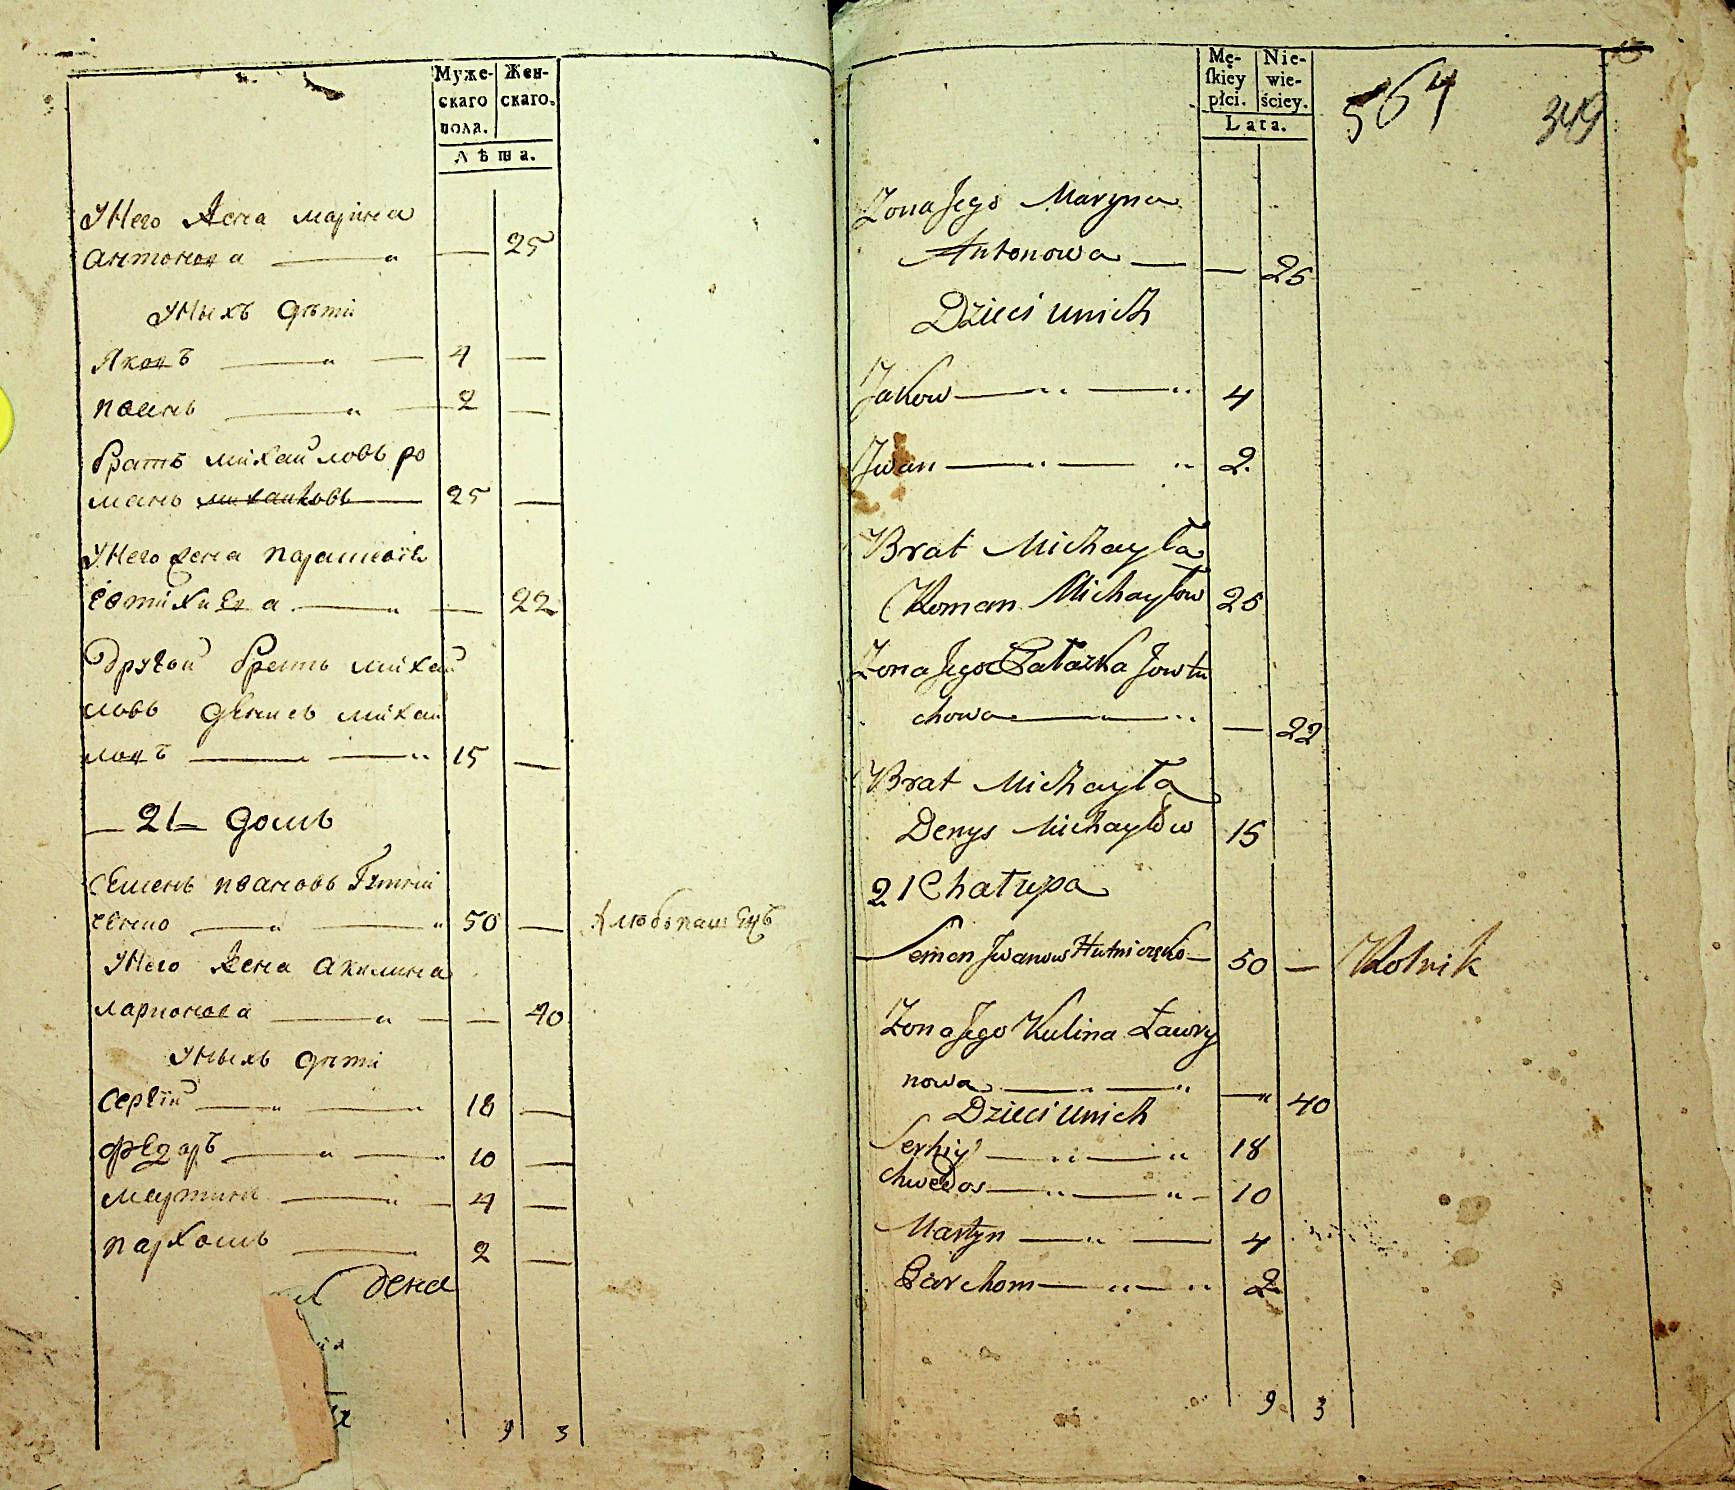 Муже-
скаго
пола.
Жен-
скаго.
Лѣта.
У Него жена марина
антонова — — 25
Уныхъ дѣти
Яковъ — — 4 —
иванъ — — 2 —
братъ михайловъ ро
манъ михайловъ 25 —
У Него жена параскѣвія
— — 22
Другой братъ михай
ловъ денисъ михаи
ловъ — — 15 —
— 21 — домъ
Семенъ ивановъ
ченко — — 50 — хлѣбопашецъ
У Него жена акилина
ларионова — — — 40
Уныхъ дѣти
Сергѣй — — 18 —
Федоръ — — 10 —
мартинъ — — 4 —
пархомъ — — 2 —
9 3
Mę-
ſkiey
płci.
Nie-
wie-
ściey.
Lata.
564 349
Zona Jego Maryna
Antonowa — — 25
Dzieci unich
Jakow — — 4
Jwan — — 2
Brat Michayła
Roman Michayłow 25
Zona Jego Pałażka Jowtu
chowa — — 22
Brat Michayła
Denys Michayłow 15
21 Chałupa
Semen Jwanow Hutniczęko — 50 — Rolnik
Zona Jego Kulina Ławry
nowa — — — 40
Dzieci unich
Serhiy — — 18
Chwedos — — 10
Martyn — — 4
Parchom — — 2
9 3